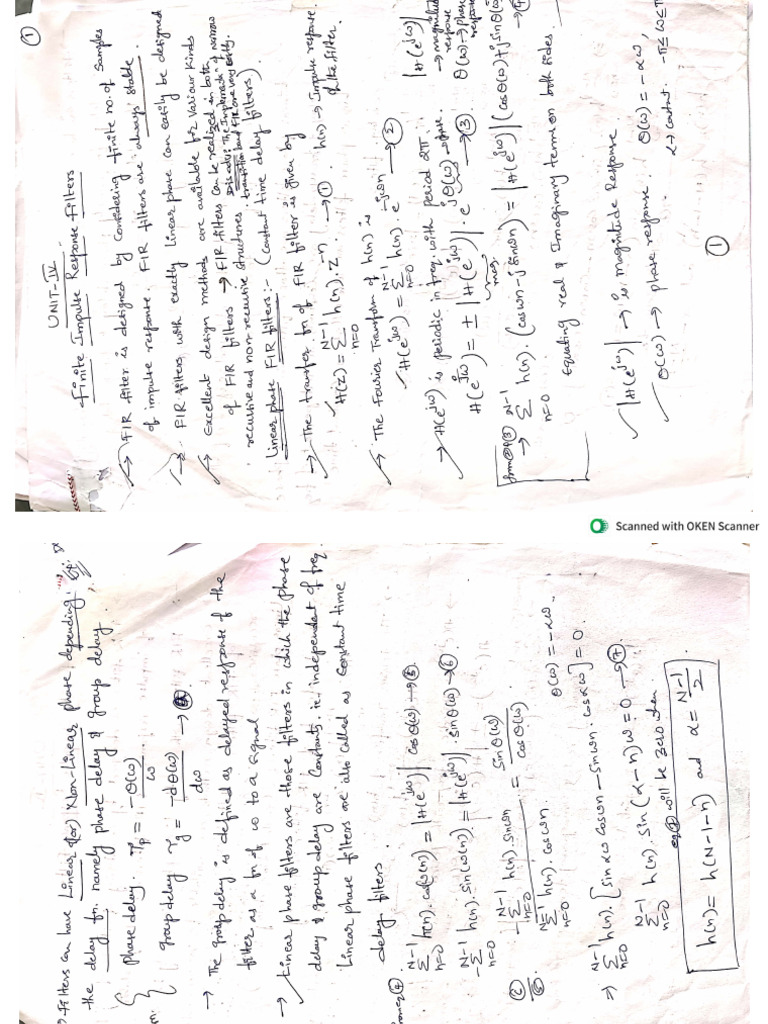 ①
UNIT-IV
Finite Impulse Response Filters
→ FIR filter is designed by Considering finite no. of Samples
of impulse response. FIR filters are always stable.
→ FIR filters with exactly linear phase can easily be designed
→ Excellent design methods are available for Various Kinds
of FIR filters → FIR filters can be realized in both
recursive and non-recursive structures.
Disadv: The Implementation of narrow
transition band FIR are very costly.
Linear phase FIR filters:- (constant time delay filters).
→ The transfer fn of FIR filter is given by
H(z) = Σ_{n=0}^{N-1} h(n). z^{-n} → ① h(n) → Impulse response
of the filter.
→ The Fourier Transform of h(n) is
H(e^{jω}) = Σ_{n=0}^{N-1} h(n). e^{-jωn} → ②
→ H(e^{jω}) is periodic in freq. with period 2π
H(e^{jω}) = ± |H(e^{jω})| . e^{jθ(ω)} → ③
mag. phase.
|H(e^{jω})|
→ magnitude
response
θ(ω) → phase
response
from ② & ③
→ Σ_{n=0}^{N-1} h(n). (cosωn - j sinωn) = |H(e^{jω})| (cosθ(ω) + j sinθ(ω)) → ④
Equating real & Imaginary terms on both sides.
|H(e^{jω})| → is magnitude Response
θ(ω) → phase response. θ(ω) = -αω,
α → constant -π≤ω≤π
①
Scanned with OKEN Scanner
→ Filters can have Linear (or) Non-Linear phase depending
the delay fn. namely phase delay & group delay.
phase delay. τp = -θ(ω)/ω
group delay τg = -dθ(ω)/dω →
→ The group delay is defined as delayed response of the
filter as a fn of ω to a signal
→ Linear phase filters are those filters in which the phase
delay & group delay are Constants, i.e. independent of freq.
Linear phase filters are also called as Constant time
delay filters.
from eq ④.
Σ_{n=0}^{N-1} h(n). cos(ωn) = |H(e^{jω})| cosθ(ω) → ⑤
-Σ_{n=0}^{N-1} h(n). sin(ωn) = |H(e^{jω})| . sinθ(ω) → ⑥
⑥/⑤ -Σ_{n=0}^{N-1} h(n). sinωn / Σ_{n=0}^{N-1} h(n). cosωn. = sinθ(ω)/cosθ(ω)
θ(ω) = -αω
⇒ Σ_{n=0}^{N-1} h(n). [sinαω cosωn - sinωn. cosαω] = 0.
Σ_{n=0}^{N-1} h(n). sin(α-n)ω = 0 → ⑦
eq ⑦ will be zero when.
h(n) = h(N-1-n) and α = N-1/2